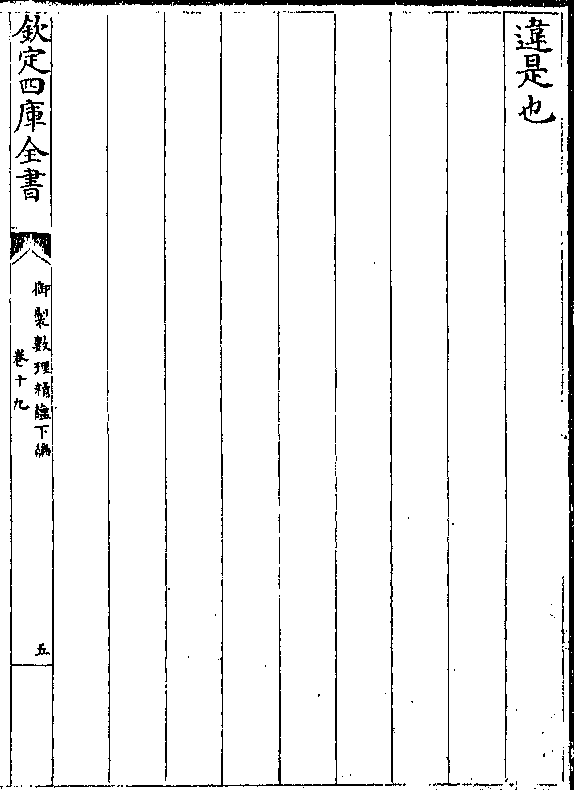 違是也
欽定四庫全書
御製數理精蘊下編
卷十九
五